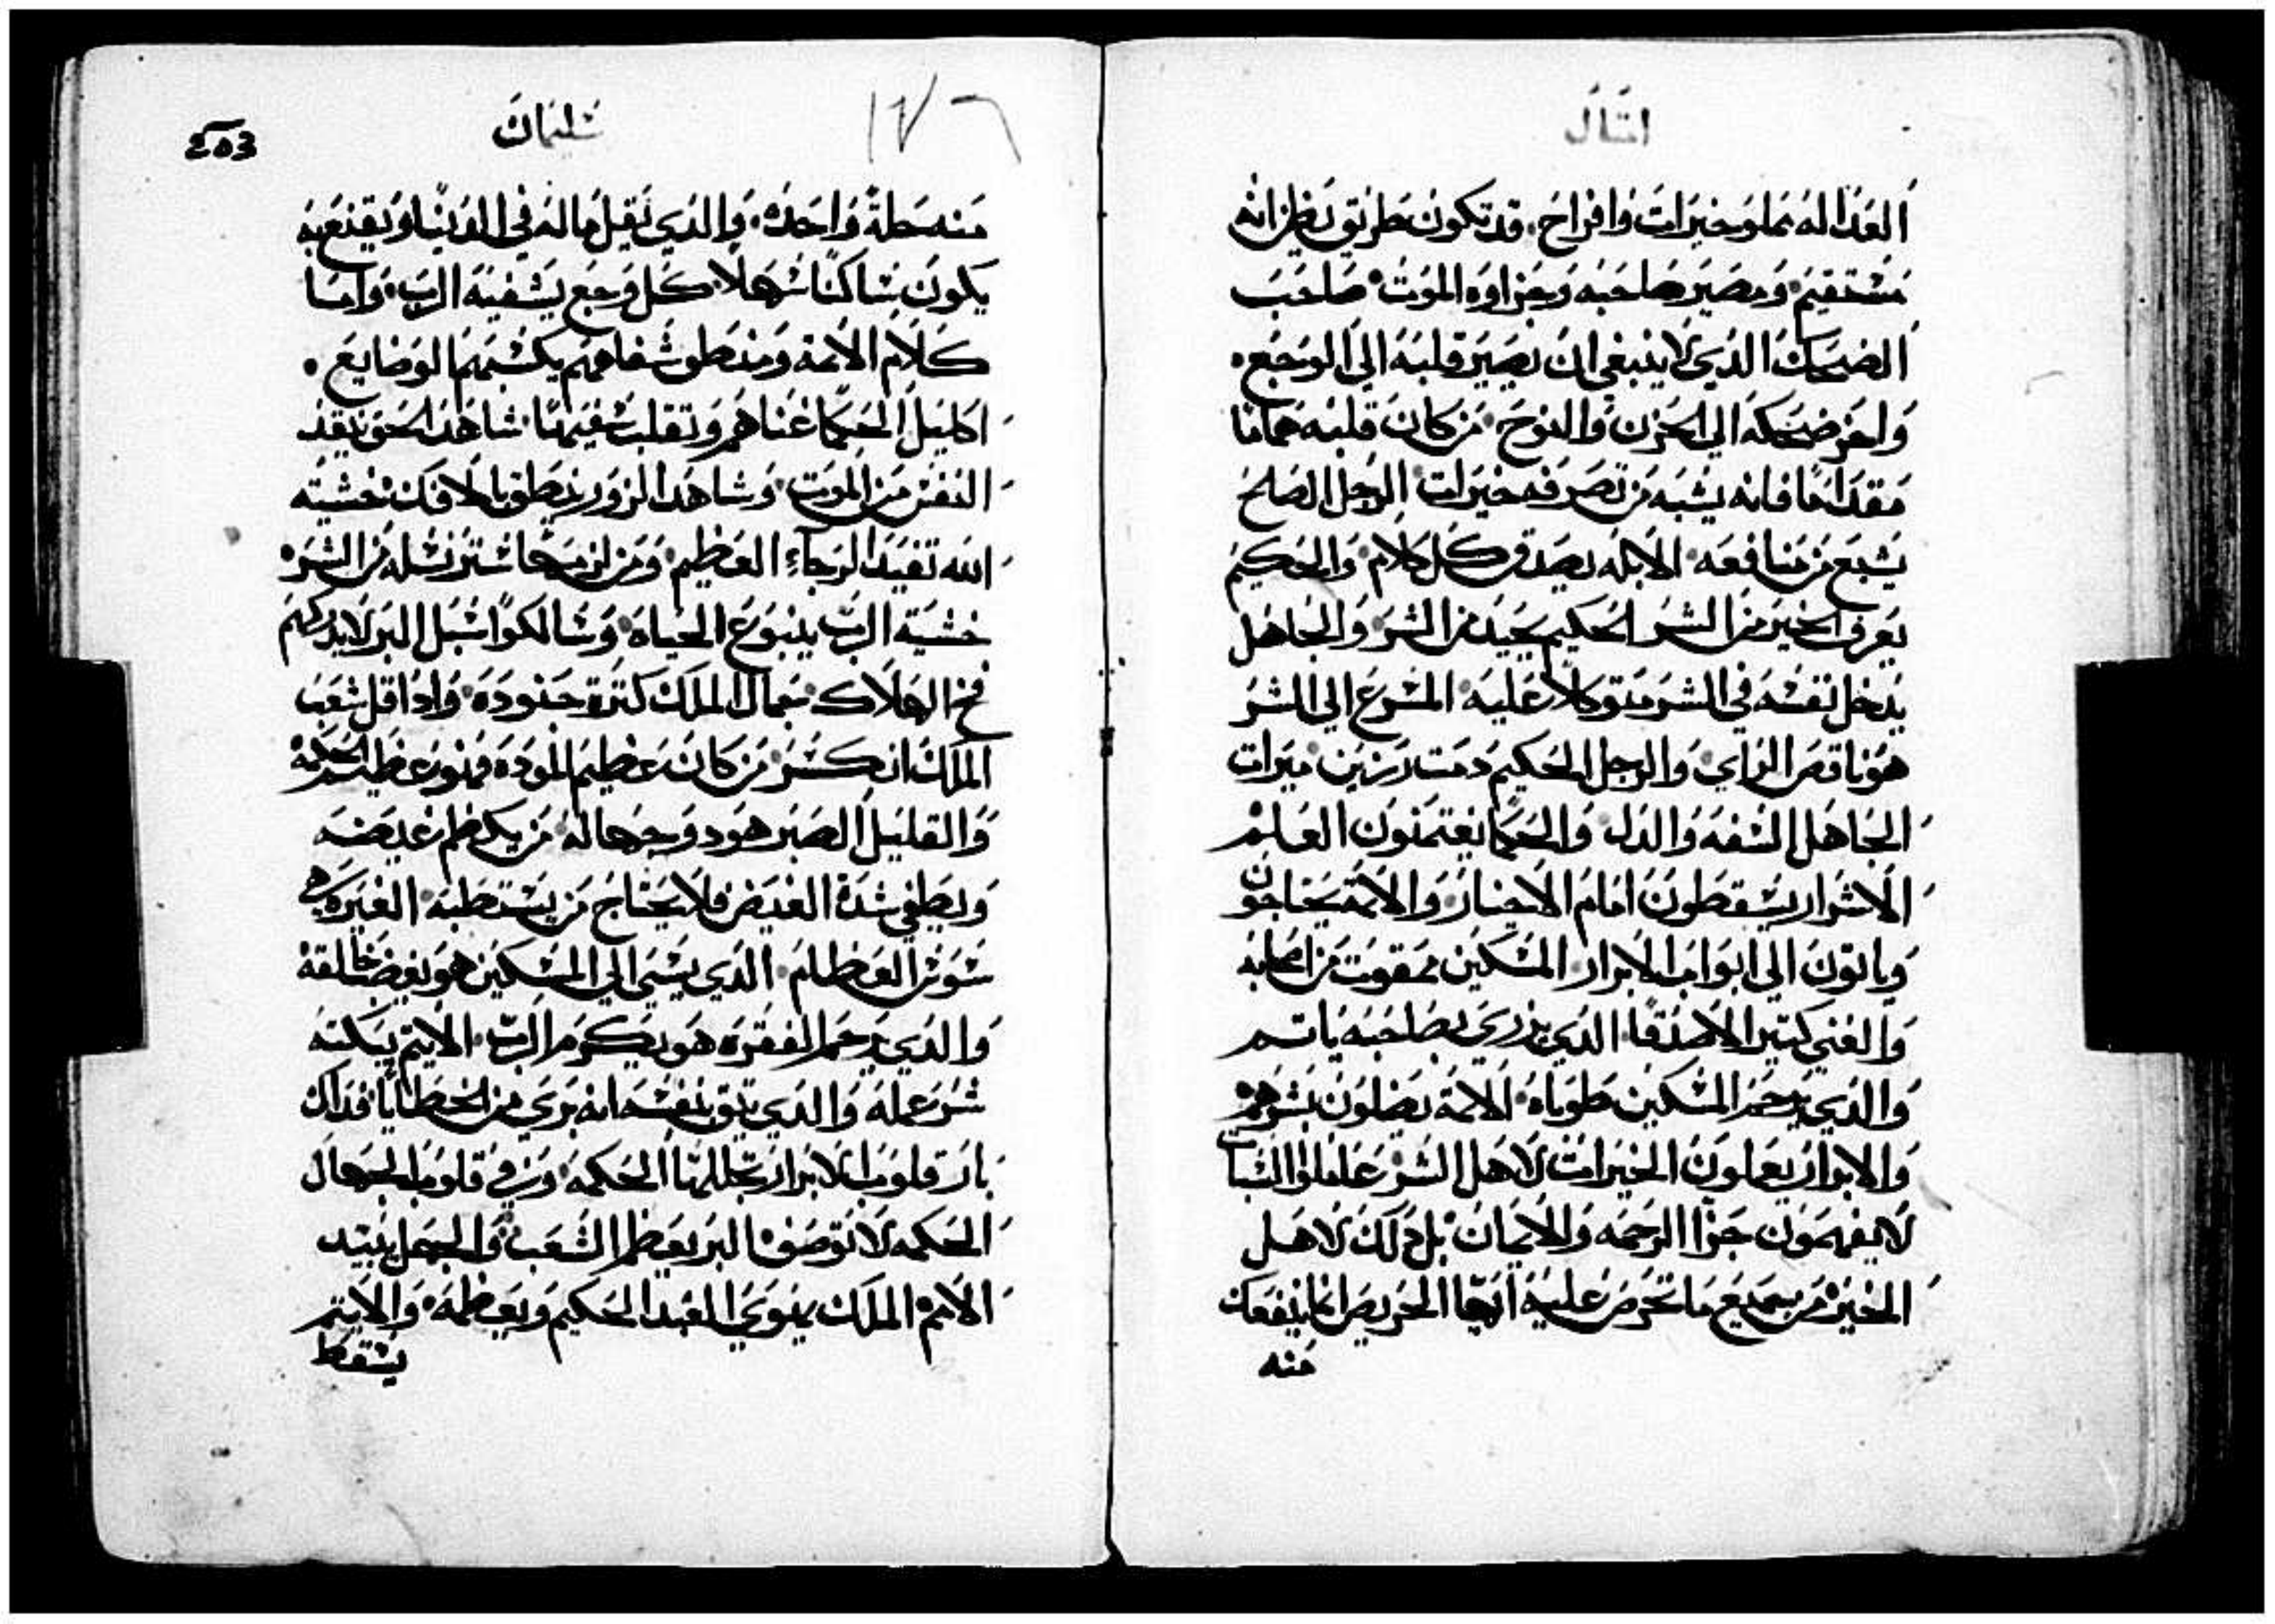 امثال
العداله تملو خيرات وافراح. قد تكون طريق يظن انه
مستقيم ومصير صاحبه وجزاوه الموت صاحب
الضحك الدي لا ينبغي ان يصير قلبه الي الوجع.
واخر ضحكه الي الحزن والنوح من كان قلبه
مقداحا فانه يشبه من تصرفه خيرات الرجل الصالح
يشبع من منافعه الابله يصدق كل كلام والحكيم
يعرف الخير من الشر الحكيم يحيد من الشر والجاهل
يدخل نفسه في الشر متوكلا عليه المسرع الي الشر
هو ناقص الراي والرجل الحكيم دمت رزين ميرات
الجاهل السفه والدل والحكما يغتمنون العلم
الاشرار يسقطون امام الاخيار والاتمة يحتاجون
وياتون الي ابواب الابرار المسكين ممقوت من اصحابه
والغني كتير الاصدقا الدي يزري بصاحبه ياتم
والدي يرحم المسكين طوباه الاتمة يضلون بشرهم
والابرار يعملون الخيرات لاهل الشر عاملوا السيات
لا يفهمون جزا الرحمه والايمان بل دلك لاهل
الخير من جميع ما تحرص عليه ايها الحريص انما ينفعك
منه
سليمان
١٧٦
منه خصلة واحده والدي يقيل ماله في الدنيا ويقنع به
يكون ساكنا سهلا كل وجع يشفيه الرب واما
كلام الاتمة ومنطق شفاههم يكسبهم الوضايع.
اكليل الحكما غناهم وتقلب سفيهنا شاهد الحق ينقد
النفس من الموت وشاهد الزور ينطق بالافك خشية
الله تفيد الرجاء العظيم ومن لزمها استتر نسله من الشر
خشية الرب ينبوع الحياه وسالكوا سبل البر لا يدركهم
فخ الهلاك جمال الملك كترة جنوده وادا قل شعب
الملك انكسر من كان عظيم المودة فهو عظيم الحكمة
والقليل الصبر هو دو جهاله من يكظم غيضه
ويطفي شدة الغيض فلا يحتاج من يستطبه الغيره هي
سوس العظام الدي يسي الي المسكين هو يغضب خالقه
والدي يرحم الفقره هو يكرم الرب الاتيم يبكته
شر عمله والدي يتق بنفسه انه بري من الخطايا فداك
بار قلوب الابرار تجللها الحكمه وفي قلوب الجهال
الحكمه لا توصف البر يعظم الشعب والجهل يبيد
الامم الملك ينوي العبد الحكيم ويعظمه والاتيم
يسقط